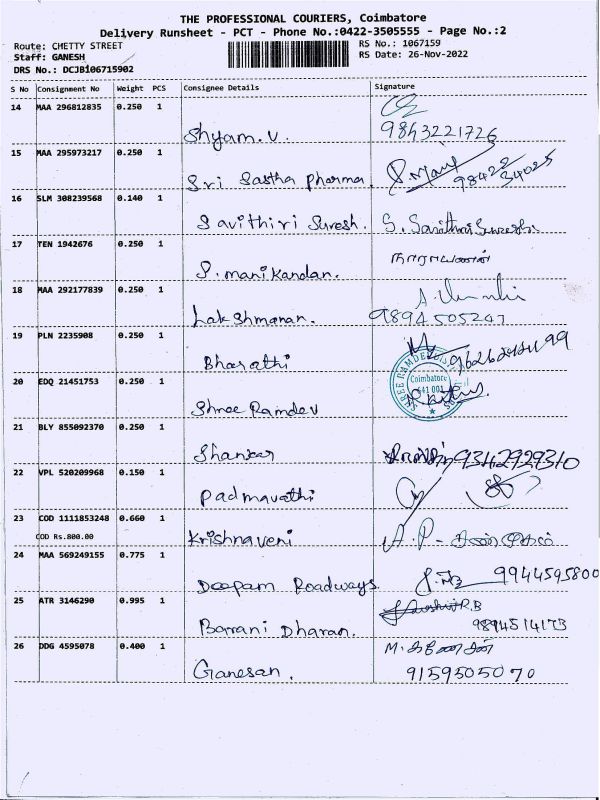 THE PROFESSIONAL COURIERS, Coimbatore
Delivery Runsheet - PCT - Phone No.:0422-3505555 - Page No.:2
Route: CHETTY STREET RS No.: 1067159
Staff: GANESH RS Date: 26-Nov-2022
DRS No.: DCJB106715902
S No Consignment No Weight PCS Consignee Details Signature
14 MAA 296812835 0.250 1
Shyam.V. 9843221726
15 MAA 295973217 0.250 1
Sri Sastha pharma. 98422 34025
16 SLM 308239568 0.140 1
Savithiri Suresh. S. Savithri Suresh
17 TEN 1942676 0.250 1
P. manikandan. நாராயணன்
18 MAA 292177839 0.250 1
Lakshmanan. 9894505247
19 PLN 2235908 0.250 1
Bharathi
20 EDQ 21451753 0.250 1 Coimbatore
641 001
Shree Ramdev
21 BLY 855092370 0.250 1
Shankar 9342929310
22 VPL 520209968 0.150 1
Padmavathi
23 COD 1111853248 0.660 1
COD Rs.800.00 Krishnaveni A.P -
24 MAA 569249155 0.775 1
Deepam Roadways. 9944595800
25 ATR 3146290 0.995 1 R.B
Barani Dharan. 9894514173
26 DDG 4595078 0.400 1 M. கணேசன்
Ganesan. 9159505070